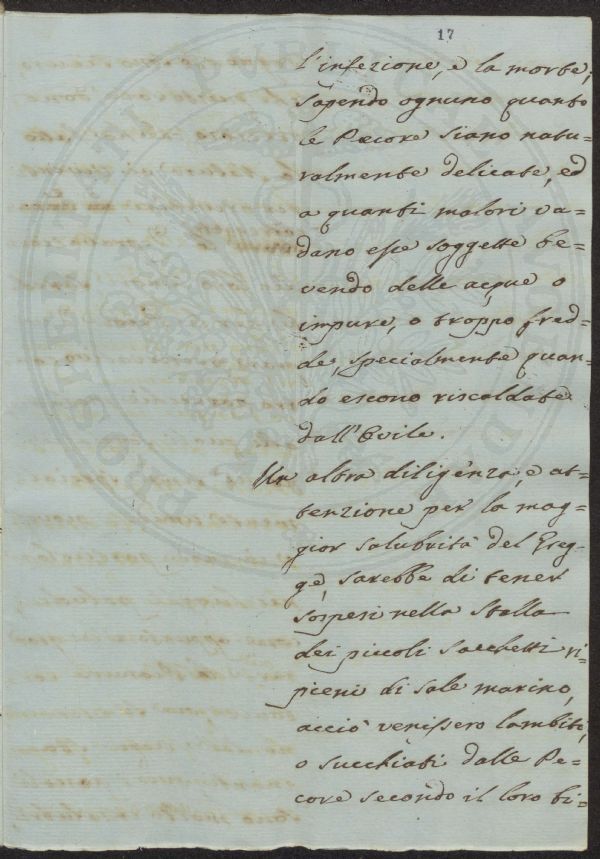 17
l'infezione, e la morte;
sapendo ognuno quanto
le Pecore siano natu-
ralmente delicate, ed
a quanti malori va-
dano esse soggette be-
vendo delle acque o
impure, o troppo fred-
de, specialmente quan-
do escono riscaldate
dall'Ovile.
Un altra diligenza, e at-
tenzione per la mag-
gior salubrità del Greg-
ge, sarebbe di tener
sospesi nella Stalla
dei piccoli Sacchetti ri-
pieni di Sale marino,
acciò venissero lambiti,
o succhiati dalle Pe-
core secondo il loro bi-